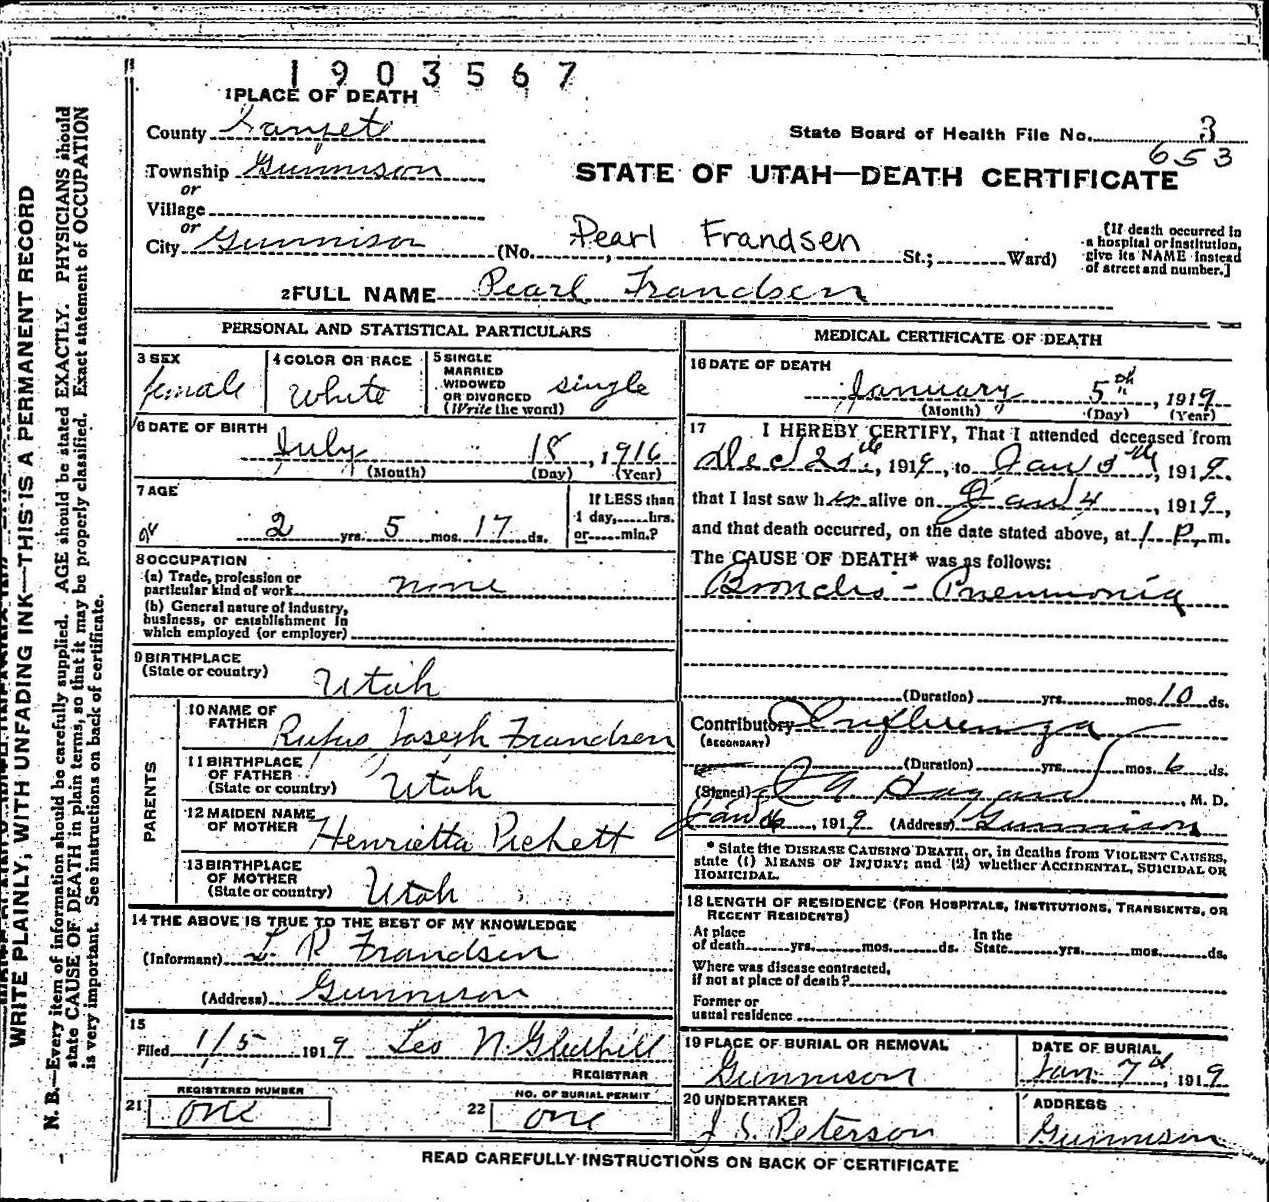 1903567
1 PLACE OF DEATH
County Sanpete
State Board of Health File No. 3
653
Township Gunnison
STATE OF UTAH—DEATH CERTIFICATE
or
Village
or
City Gunnison (No. Pearl Frandsen St.; Ward)
[If death occurred in
a hospital or institution,
give its NAME instead
of street and number.]
2 FULL NAME Pearl Frandsen
PERSONAL AND STATISTICAL PARTICULARS
3 SEX
female
4 COLOR OR RACE
White
5 SINGLE
MARRIED
WIDOWED
OR DIVORCED
(Write the word)
single
6 DATE OF BIRTH
July 18, 1916
(Month) (Day) (Year)
7 AGE
2 yrs. 5 mos. 17 ds.
If LESS than
1 day, hrs.
or min.?
8 OCCUPATION
(a) Trade, profession or
particular kind of work none
(b) General nature of industry,
business, or establishment in
which employed (or employer)
9 BIRTHPLACE
(State or country) Utah
PARENTS
10 NAME OF
FATHER Rufus Joseph Frandsen
11 BIRTHPLACE
OF FATHER
(State or country) Utah
12 MAIDEN NAME
OF MOTHER Henrietta Pickett
13 BIRTHPLACE
OF MOTHER
(State or country) Utah
14 THE ABOVE IS TRUE TO THE BEST OF MY KNOWLEDGE
(Informant) L. R Frandsen
(Address) Gunnison
15
Filed 1/5 1919 Leo N. Gledhill
REGISTRAR
REGISTERED NUMBER
21 one
NO. OF BURIAL PERMIT
22 one
MEDICAL CERTIFICATE OF DEATH
16 DATE OF DEATH
January 5th, 1919
(Month) (Day) (Year)
17 I HEREBY CERTIFY, That I attended deceased from
Dec 25th, 1919, to Jan 5th, 1919.
that I last saw her alive on Jan 4, 1919,
and that death occurred, on the date stated above, at 1 P. m.
The CAUSE OF DEATH* was as follows:
Broncho - Pneumonia
(Duration) yrs. mos. 10 ds.
Contributory Influenza
(SECONDARY)
(Duration) yrs. mos. 6 ds.
(Signed) Hagan, M. D.
Jan 6, 1919 (Address) Gunnison
* State the DISEASE CAUSING DEATH, or, in deaths from VIOLENT CAUSES,
state (1) MEANS OF INJURY; and (2) whether ACCIDENTAL, SUICIDAL OR
HOMICIDAL.
18 LENGTH OF RESIDENCE (FOR HOSPITALS, INSTITUTIONS, TRANSIENTS, OR
RECENT RESIDENTS)
At place
of death yrs. mos. ds. In the State yrs. mos. ds.
Where was disease contracted,
if not at place of death?
Former or
usual residence
19 PLACE OF BURIAL OR REMOVAL
Gunnison
DATE OF BURIAL
Jan 7th, 1919
20 UNDERTAKER
J S. Peterson
ADDRESS
Gunnison
READ CAREFULLY INSTRUCTIONS ON BACK OF CERTIFICATE
WRITE PLAINLY, WITH UNFADING INK—THIS IS A PERMANENT RECORD
N. B.—Every item of information should be carefully supplied. AGE should be stated EXACTLY. PHYSICIANS should
state CAUSE OF DEATH in plain terms, so that it may be properly classified. Exact statement of OCCUPATION
is very important. See instructions on back of certificate.